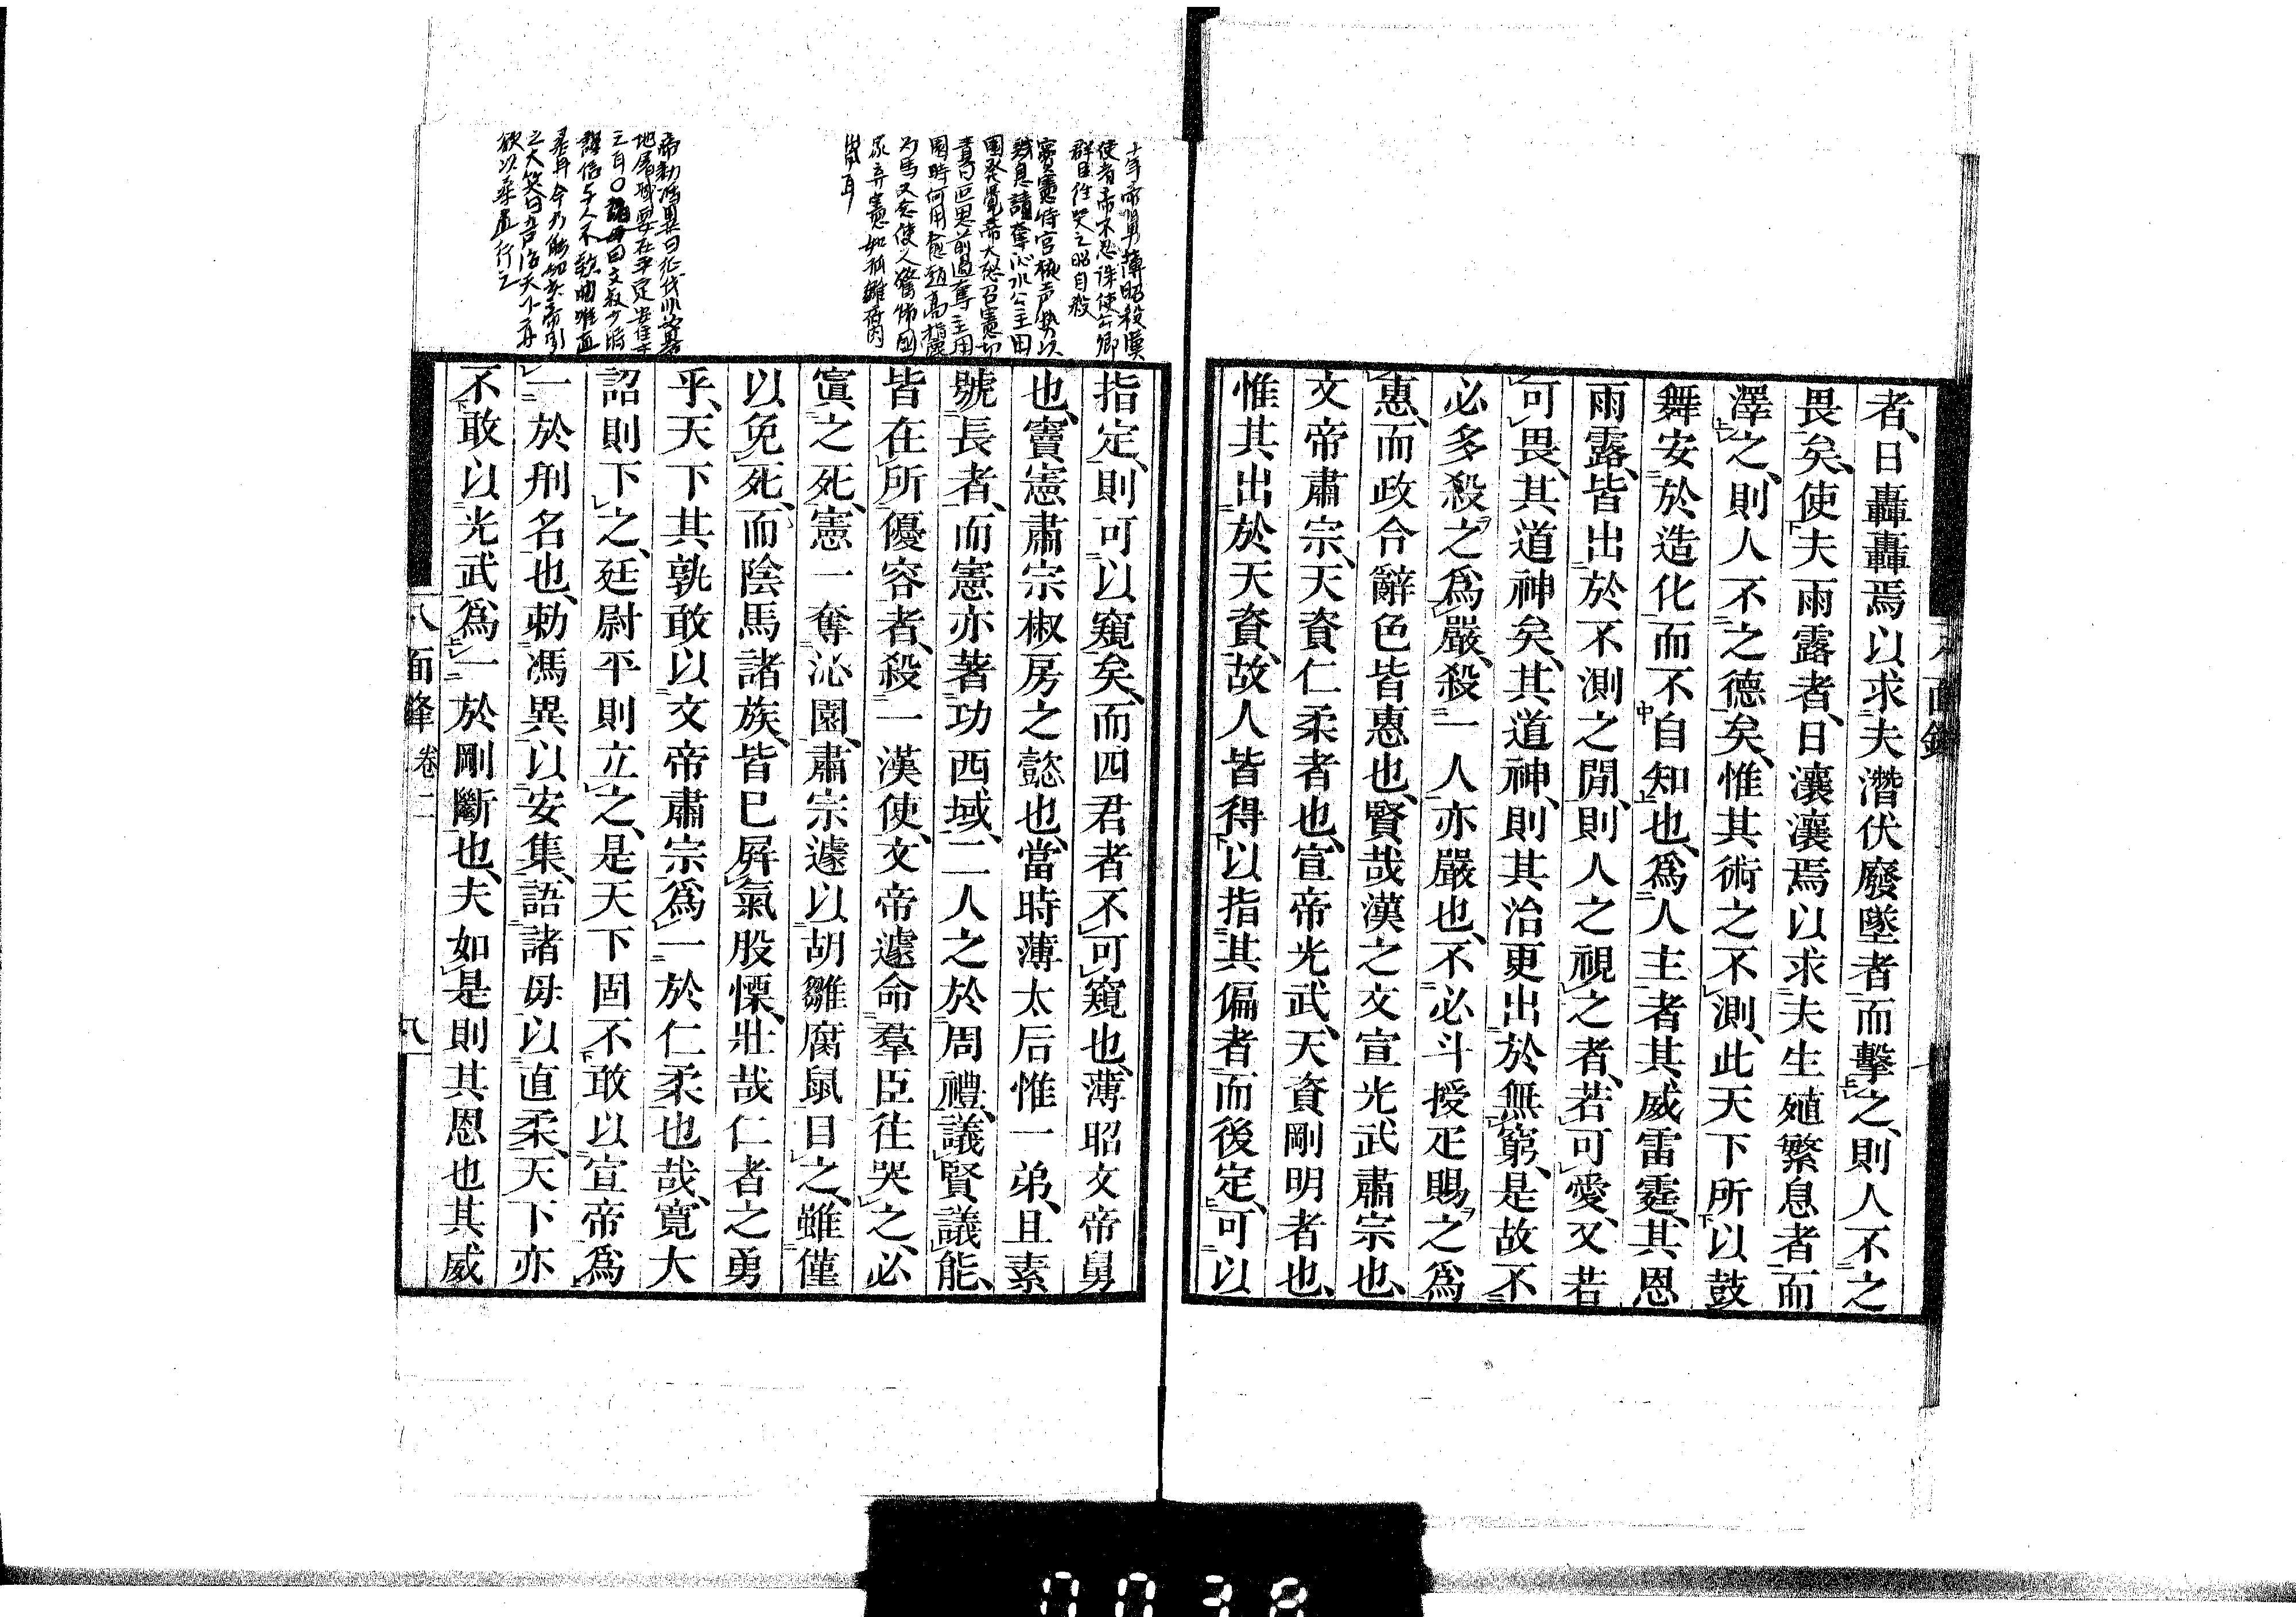 者、日轟轟焉以求夫潛伏廢墜者而擊之、則人不之
畏矣、使夫雨露者、日瀼瀼焉以求夫生殖繁息者而
澤之、則人不之德矣、惟其術之不測、此天下所以鼓
舞安於造化而不自知也、爲人主者其威雷霆、其恩
雨露、皆出於不測之閒、則人之視之者、若可愛、又若
可畏、其道神矣、其道神、則其治更出於無窮、是故不
必多殺之爲嚴、殺一人亦嚴也、不必斗授疋賜之爲
惠、而政合辭色皆惠也、賢哉漢之文宣光武肅宗也、
文帝肅宗、天資仁柔者也、宣帝光武、天資剛明者也、
惟其出於天資、故人皆得以指其偏者而後定、可以
十年帝舅薄昭殺漢
使者帝不忍誅使公卿
群臣往哭之昭自殺
竇憲恃宮掖声勢以
賤直請奪沁水公主田
園發覺帝大怒召憲切
責曰思前過奪主田
園時何用愈趙高指鹿
爲馬久念使人驚怖國
家棄憲如孤雛腐鼠
耳
指定、則可以窺矣、而四君者不可窺也、薄昭文帝舅
也、竇憲肅宗椒房之懿也、當時薄太后惟一弟、且素
號長者、而憲亦著功西域、二人之於周禮、議賢議能、
皆在所優容者、殺一漢使、文帝遽命羣臣往哭之、必
寘之死、憲一奪沁園、肅宗遽以胡雛腐鼠目之、雖僅
以免死、而陰馬諸族、皆已屛氣股慄、壯哉仁者之勇
乎、天下其孰敢以文帝肅宗爲一於仁柔也哉、寬大
詔則下之、廷尉平則立之、是天下固不敢以宣帝爲
一於刑名也、勅馮異以安集、語諸母以直柔、天下亦
不敢以光武爲一於剛斷也、夫如是則其恩也其威
帝勅馮異曰征伐非必略
地屠城要在平定安集
之耳〇諸母曰文叔少時
謹信与人不款曲唯直
柔耳今乃能如此帝聞
之大笑曰吾治天下亦
欲以柔道行之
八面鋒 卷二 八